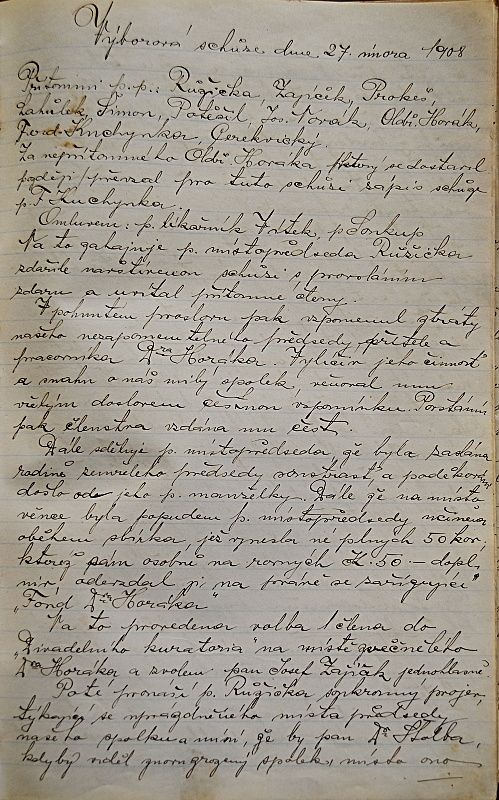 Výborová schůze dne 27. února 1908
Přítomni p. p.: Růžička, Zajíček, Prokeš,
Šimon, Potěšil, Jos. Novák, Old. Horák,
Ferd. Kuchynka Cerekvický.
Za nepřítomného Old. Horáka který se dostavil
později převzal pro tuto schůzi zápis schůze
p. F. Kuchynka.
Omluveni: p. lékárník Vrtek, p Sonkup
Na to zahajuje p. místopředseda Růžička
zdařile navštívenou schůzi s provoláním
zdaru a uvítal přítomné členy.
V pohnutém proslovu pak vzpomenul ztráty
našeho nezapomenutelného předsedy přítele a
pracovníka Dra Horáka. Vylíčiv jeho činnost
a snahu o náš milý spolek, věnoval mu
vřelým doslovem čestnou vzpomínku. Povstáním
pak členstva vzdána mu čest.
Dále sděluje p. místopředseda, že byla zaslána
rodině zemřelého předsedy soustrast, a poděkování
došlo od jeho p. manželky. Dále že na místo
věnce byla popudem p. místopředsedy učiněna
oběhem sbírka, jež vynesla ne plných 50 kor.,
kterou sám osobně na rovných K. 50.– dopl
niv, odevzdal ji na právě se zařizující
"Fond Dra Horáka"
Na to provedena volba 1 člena do
"Divadelního kuratoria" na místě zvěčnělého
Dra Horáka a zvolen pan Josef Zajíček jednohlasně.
Poté pronáší p. Růžička soukromý projev,
týkající se uprázdněného místa předsedy
našeho spolku a míní, že by pan Dr Štolba,
kdyby viděl znovuzrozený spolek, místo ono